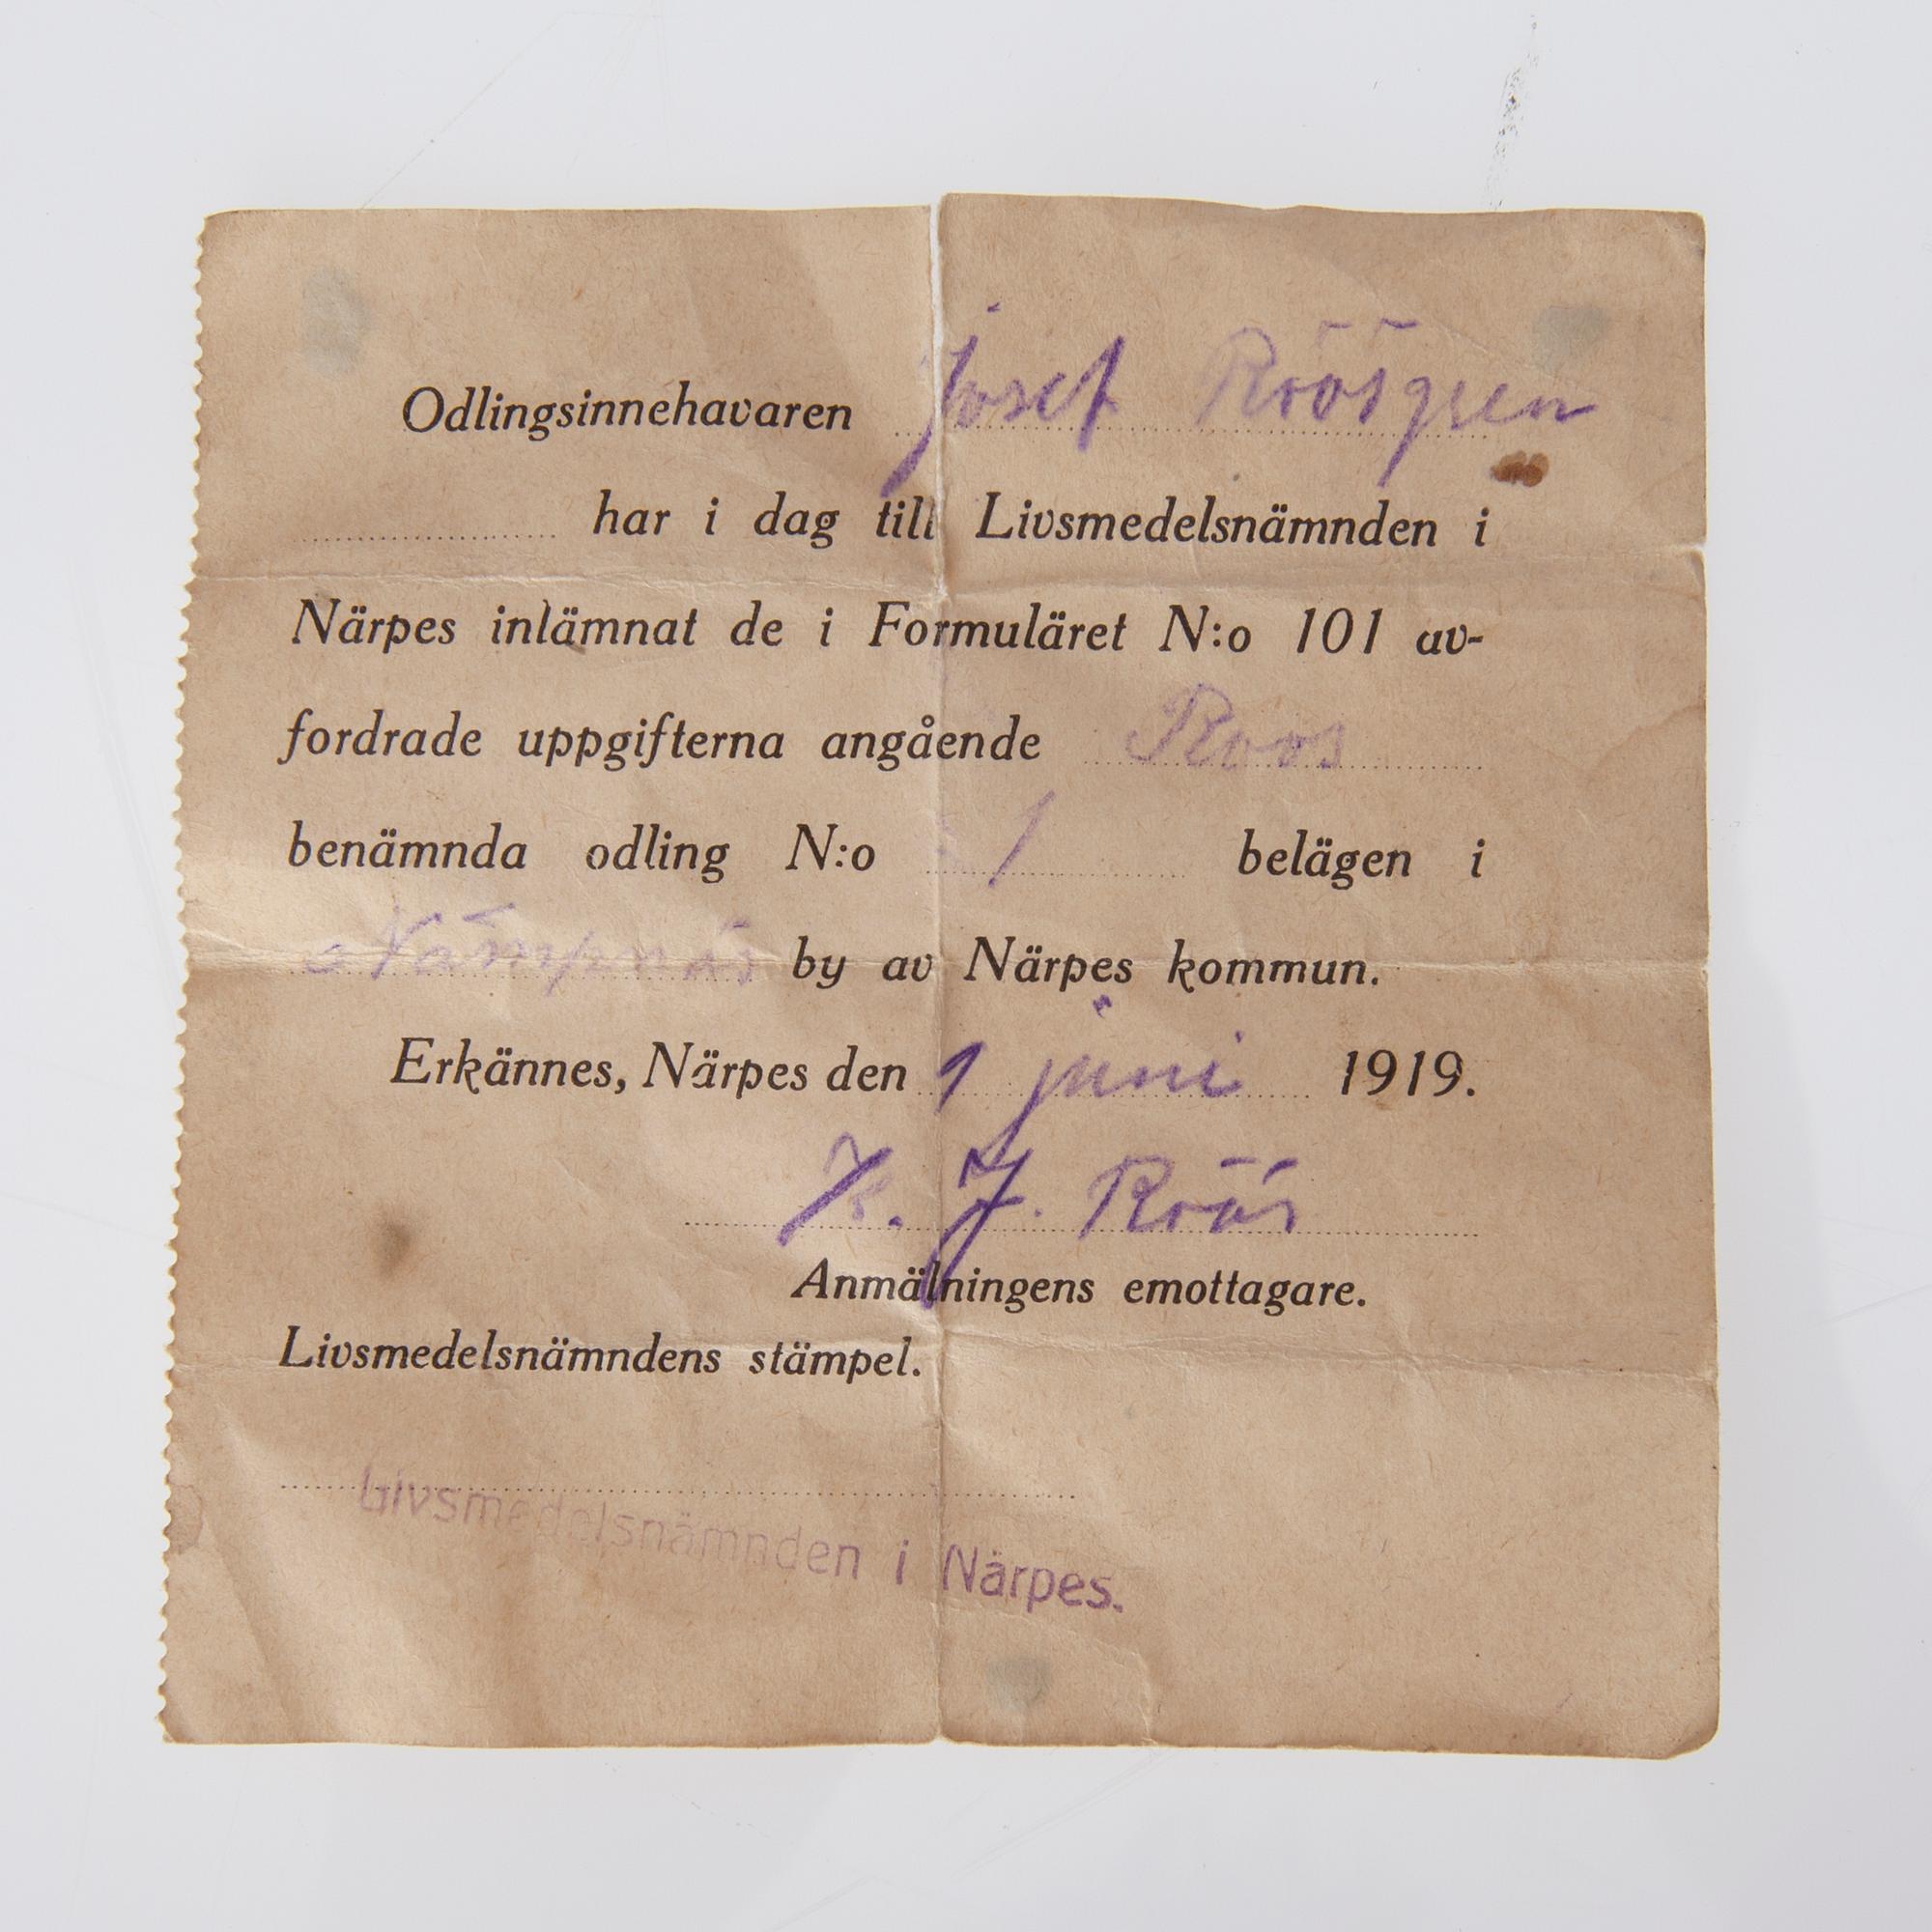 Odlingsinnehavaren Josef Röösgren
har i dag till Livsmedelsnämnden i
Närpes inlämnat de i Formuläret N:o 101 av-
fordrade uppgifterna angående Roos
benämnda odling N:o 1 belägen i
Nämpnäs by av Närpes kommun.
Erkännes, Närpes den 1 juni 1919.
K. J. Röös
Anmälningens emottagare.
Livsmedelsnämndens stämpel.
Livsmedelsnämnden i Närpes.